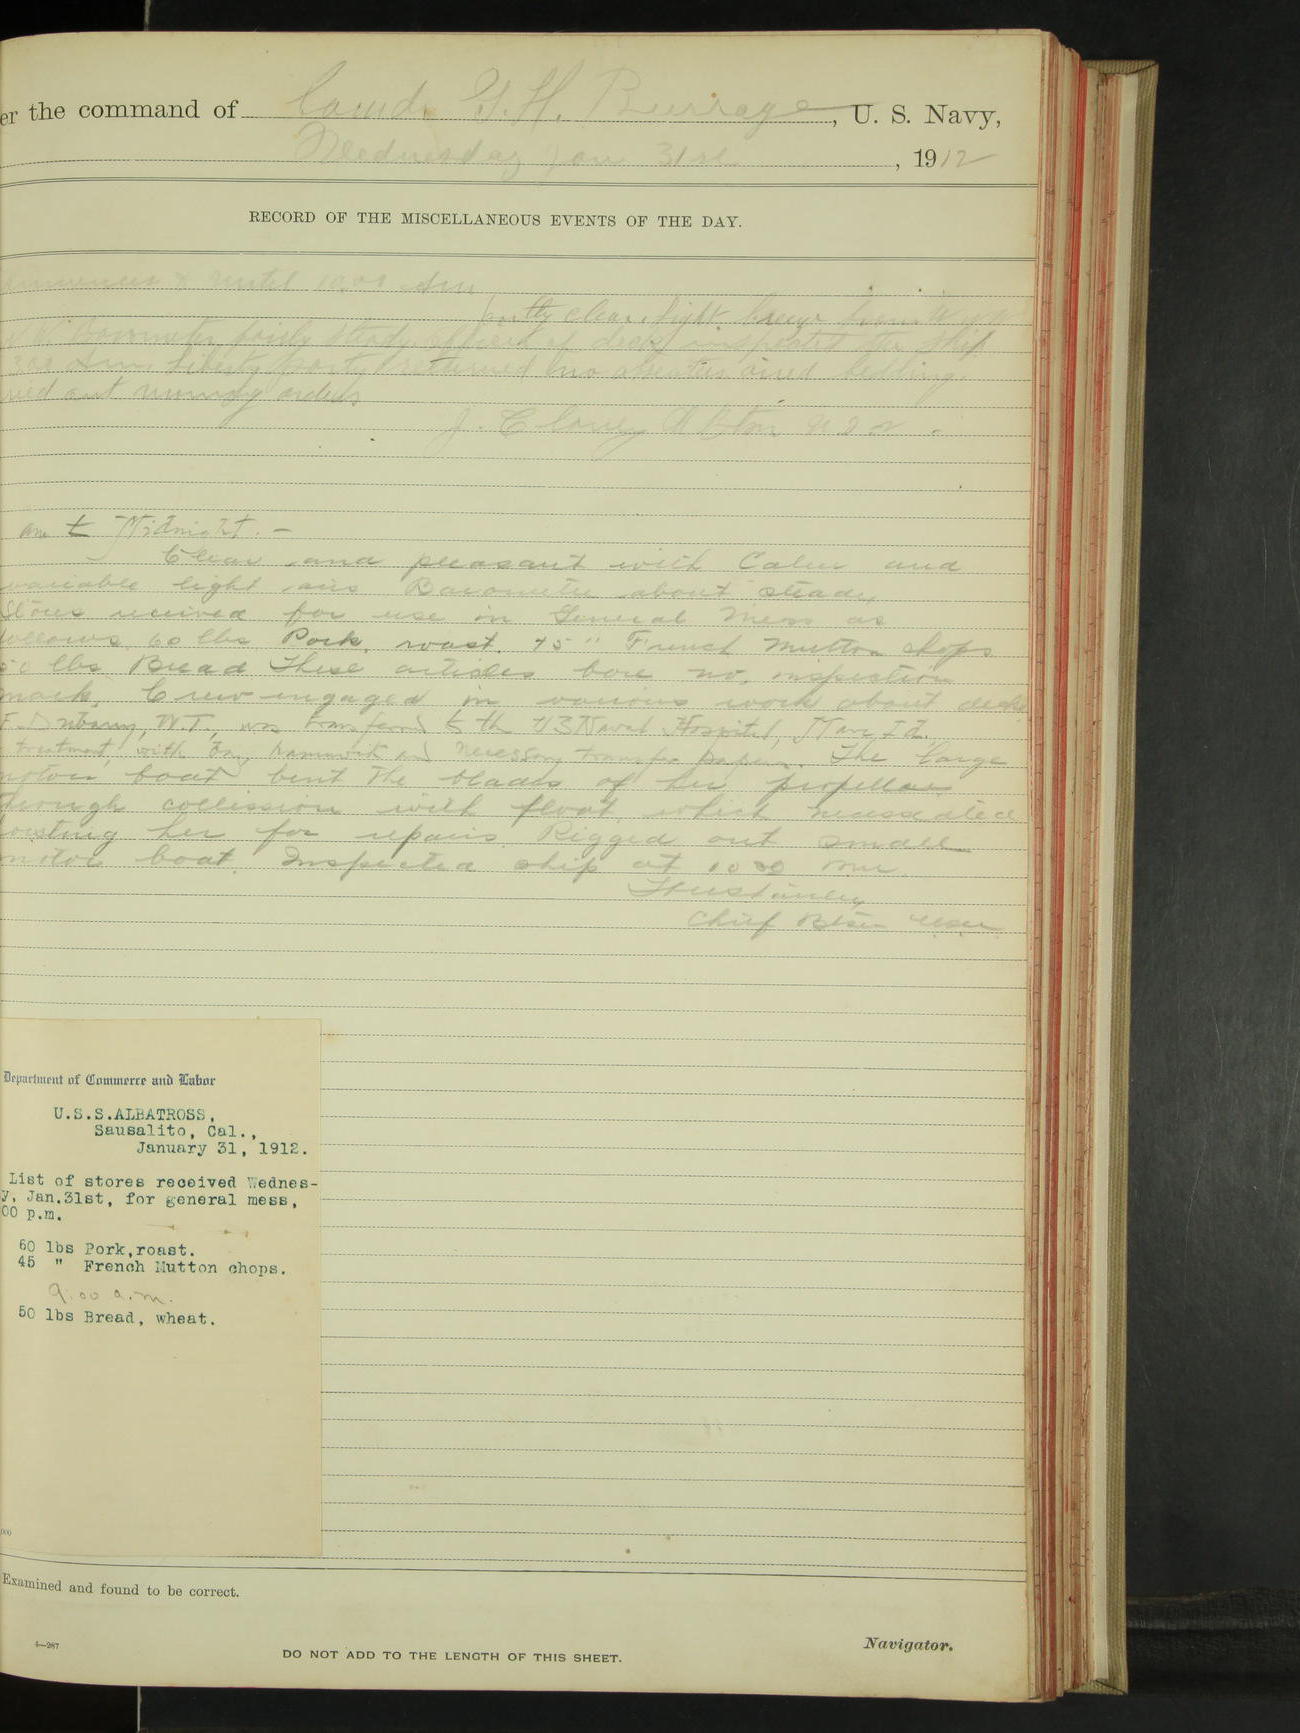 er the command of Comd. G. H. Burrage, U. S. Navy,
Wednesday Jan 31st, 1912
RECORD OF THE MISCELLANEOUS EVENTS OF THE DAY.
& until 10.00 Am
partly clear, light breeze from
Barometer fairly steady, officer of deck inspected the ship
Am, Liberty party returned no absentees aired bedding.
ried out orders
J.
am to Midnight. —
Clear and pleasant with Calm and
variable light airs Barometer about steady
Stores received for use in General Mess as
follows 60 lbs Pork, roast. 45 " French Mutton chops
50 lbs Bread These articles bore no inspection
mark. Crew engaged in various work about decks
W.T., was transferred to the US Naval Hospital, Mare Id.
treatment, with bag, hammock and necessary transfer papers. The large
motor boat bent the blades of her propeller
through collission with float, which necessitated
hoisting her for repairs. Rigged out small
motor boat. Inspected ship at 10 00
Chief Btsn USN
Department of Commerce and Labor
U.S.S.ALBATROSS,
Sausalito, Cal.,
January 31, 1912.
List of stores received Wednes-
y, Jan.31st, for general mess,
00 p.m.
60 lbs Pork,roast.
45 " French Mutton chops.
9:00 a.m.
50 lbs Bread, wheat.
Examined and found to be correct.
4—287
Navigator.
DO NOT ADD TO THE LENGTH OF THIS SHEET.